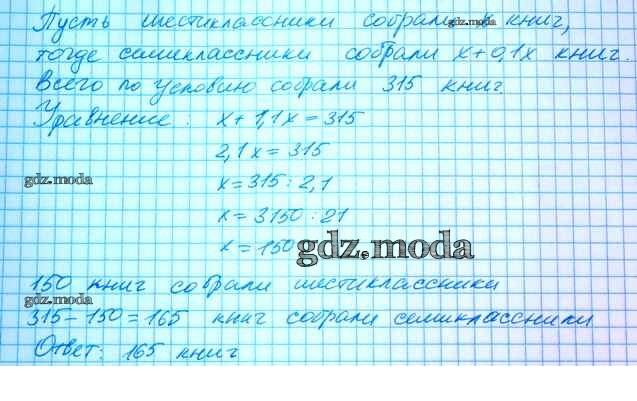 Пусть шестиклассники собрали x книг,
gdz.moda
тогда семиклассники собрали x+0,1x книг.
Всего по условию собрали 315 книг
Уравнение: x+1,1x=315
2,1x=315
gdz.moda
x=315:2,1
x=3150:21
x=150
gdz.moda
150 книг собрали шестиклассники
gdz.moda
315-150=165 книг собрали семиклассники
Ответ: 165 книг